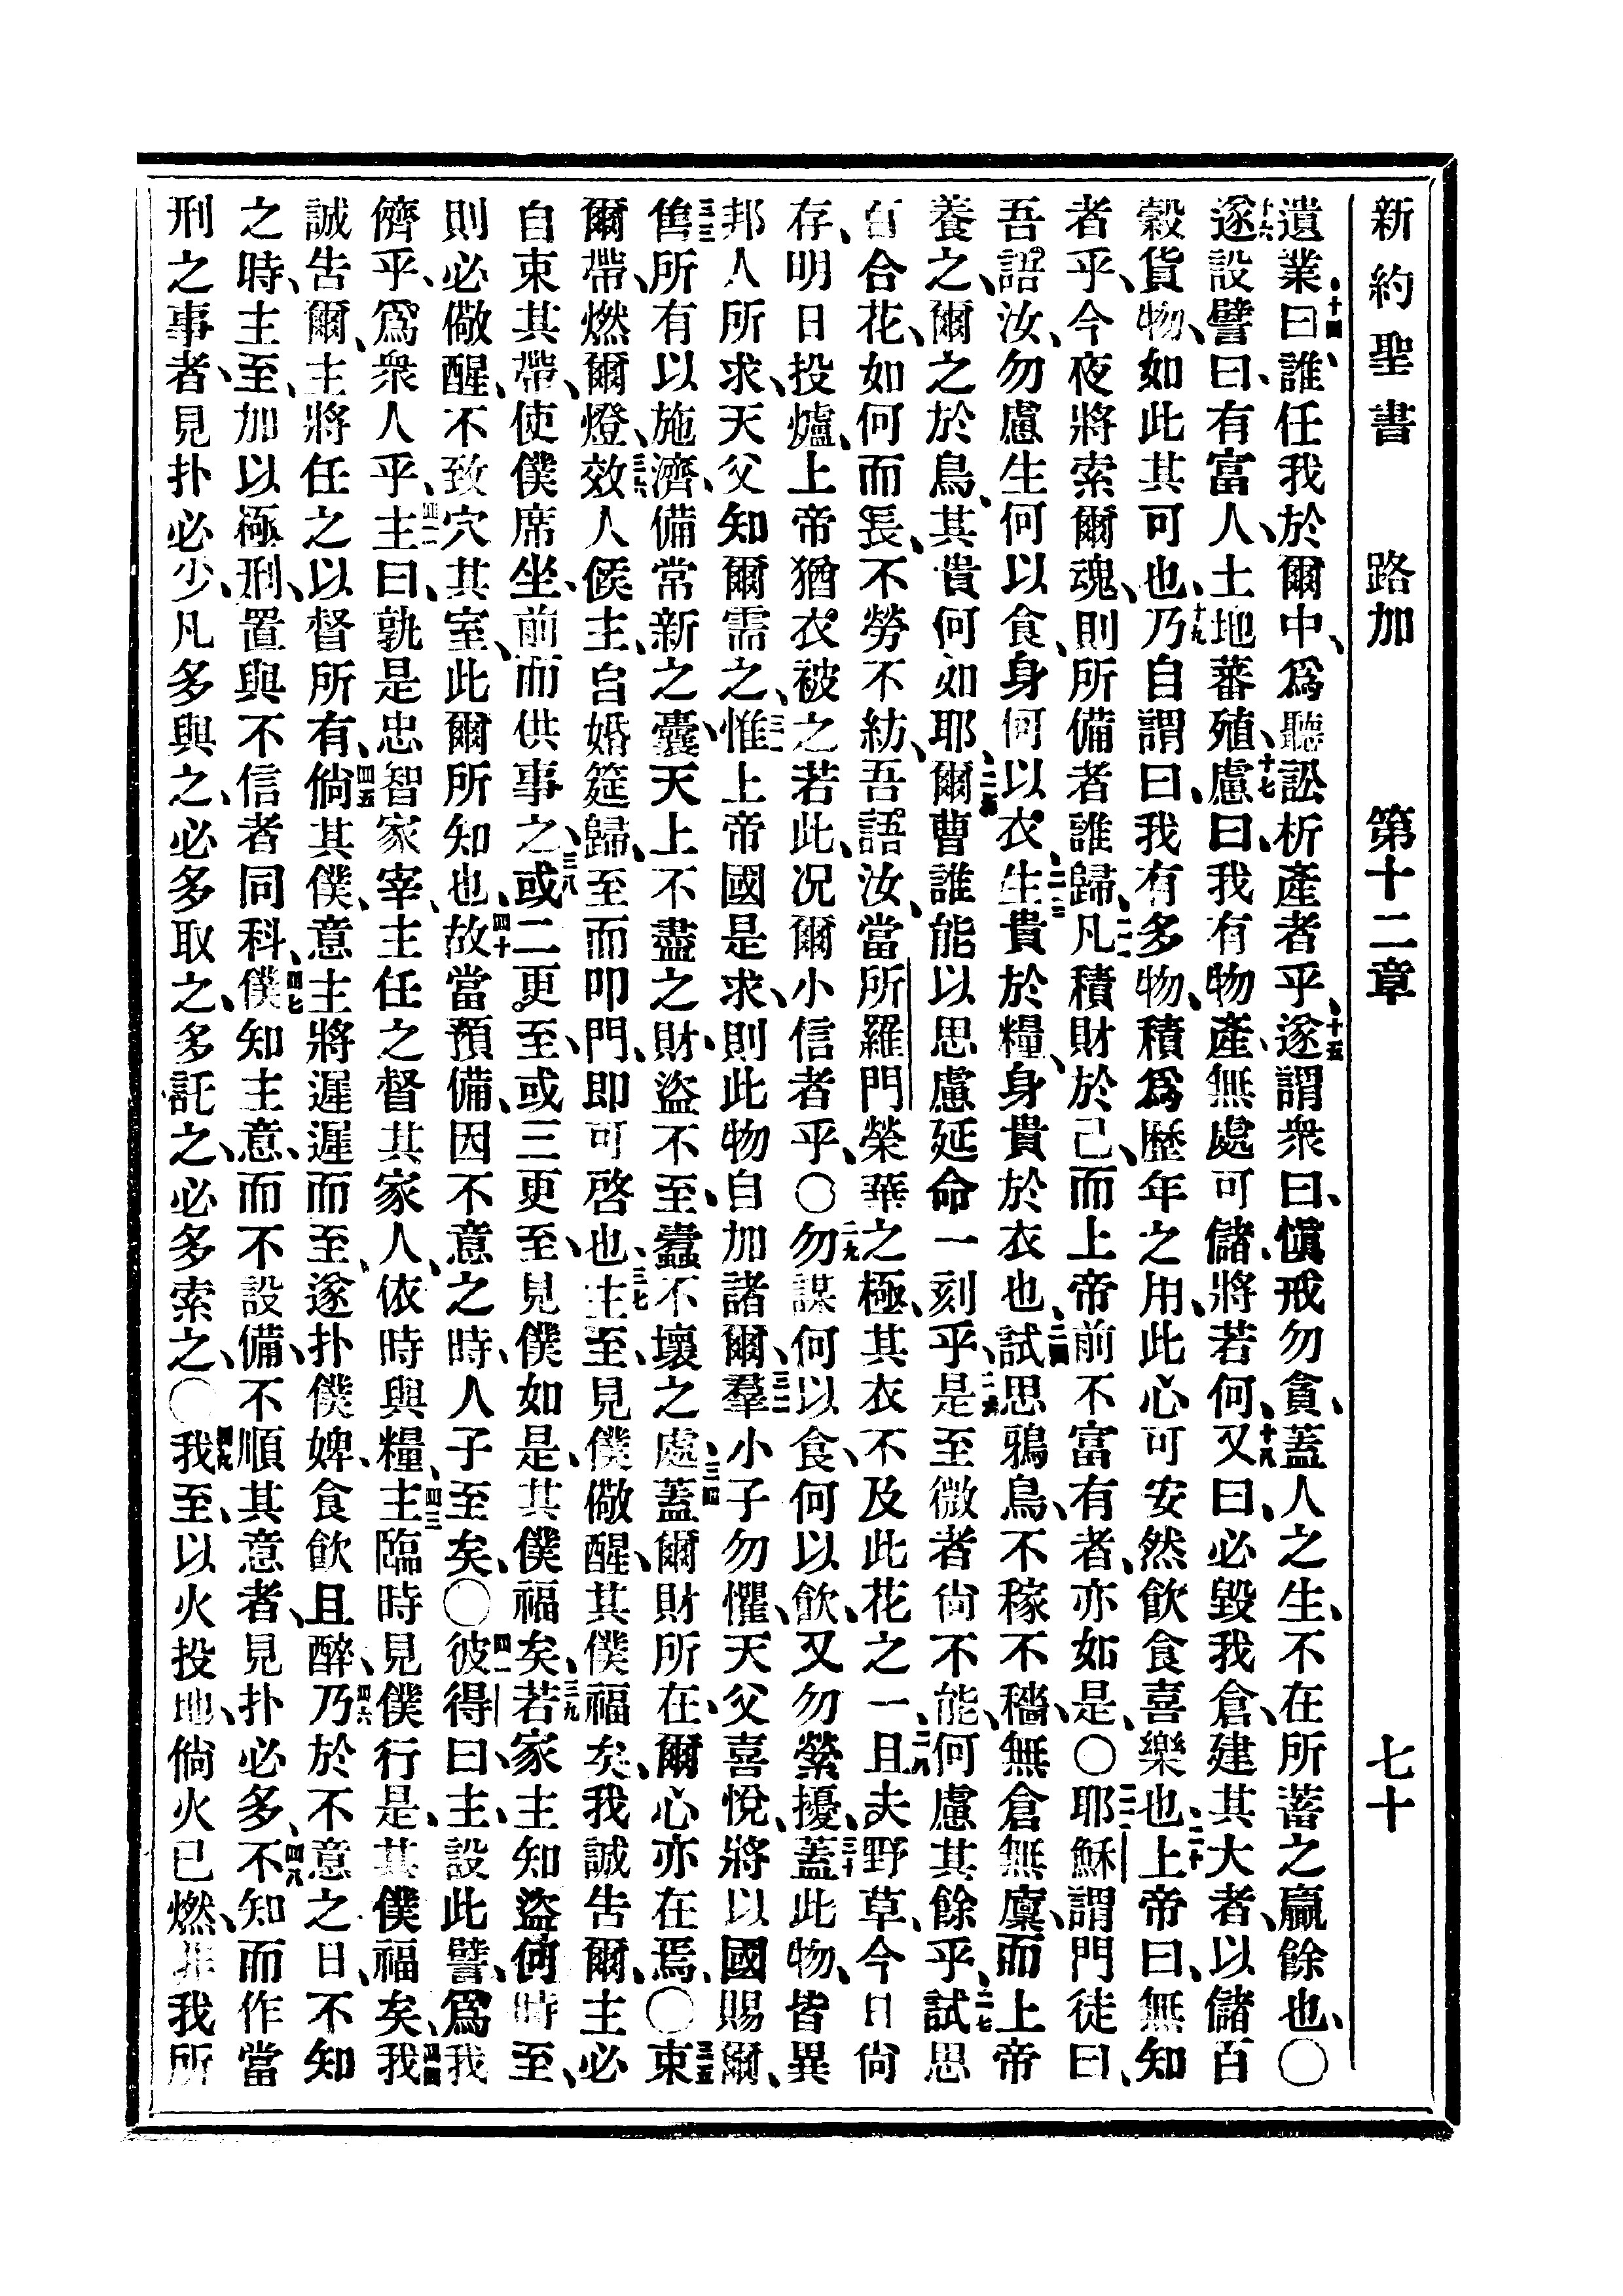 新約聖書 路加 第十二章 七十
遺業、十四曰、誰任我於爾中、爲聽訟析產者乎、十五遂謂衆曰、愼戒勿貪、蓋人之生、不在所蓄之贏餘也、〇
十六遂設譬曰、有富人、土地蕃殖、十七慮曰、我有物產、無處可儲、將若何、十八又曰、必毀我倉、建其大者、以儲百
穀貨物、如此其可也、十九乃自謂曰、我有多物、積爲歷年之用、此心可安然飮食喜樂也、二十上帝曰、無知
者乎、今夜將索爾魂、則所備者誰歸、二一凡積財於己、而上帝前不富有者、亦如是、〇二二耶穌謂門徒曰、
吾語汝、勿慮生何以食、身何以衣、二三生貴於糧、身貴於衣也、二四試思鴉鳥、不稼不穡、無倉無廩、而上帝
養之、爾之於鳥、其貴何如耶、二五爾曹誰能以思慮延命一刻乎、二六是至微者尙不能、何慮其餘乎、二七試思
百合花、如何而長、不勞不紡、吾語汝、當所羅門榮華之極、其衣不及此花之一、二八且夫野草、今日尙
存、明日投爐、上帝猶衣被之若此、况爾小信者乎、〇二九勿謀何以食、何以飮、又勿縈擾、三十蓋此物、皆異
邦人所求、天父知爾需之、三一惟上帝國是求、則此物自加諸爾、三二羣小子勿懼、天父喜悅、將以國賜爾、
三三售所有以施濟、備常新之囊、天上不盡之財、盜不至、蠹不壞之處、三四蓋爾財所在、爾心亦在焉、〇三五束
爾帶、燃爾燈、三六效人候主、自婚筵歸、至而叩門、即可啓也、三七主至、見僕儆醒、其僕福矣、我誠告爾、主必
自束其帶、使僕席坐、前而供事之、三八或二更至、或三更至、見僕如是、其僕福矣、三九若家主知盜何時至、
則必儆醒、不致穴其室、此爾所知也、四十故當預備、因不意之時、人子至矣、〇四一彼得曰、主、設此譬、爲我
儕乎、爲衆人乎、四二主曰、孰是忠智家宰、主任之督其家人、依時與糧、四三主臨時見僕行是、其僕福矣、四四我
誠告爾、主將任之以督所有、四五倘其僕、意主將遲遲而至、遂扑僕婢、食飮且醉、四六乃於不意之日、不知
之時、主至、加以極刑、置與不信者同科、四七僕知主意、而不設備、不順其意者、見扑必多、四八不知而作當
刑之事者、見扑必少、凡多與之、必多取之、多託之、必多索之、〇四九我至、以火投地、倘火已燃、非我所